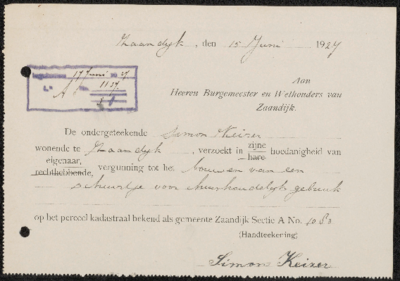 Zaandijk, den 15 Juni 1927
17 Juni 27
1127
A
Aan
Heeren Burgemeester en Wethouders van
Zaandijk.
De ondergeteekende Simon Keizer
wonende te Zaandijk, verzoekt in zijne hare hoedanigheid van
eigenaar, rechthebbende, vergunning tot het bouwen van een
schuurtje voor huishoudelijk gebruik
op het perceel kadastraal bekend als gemeente Zaandijk Sectie A No. 1080
(Handteekening)
Simon Keizer